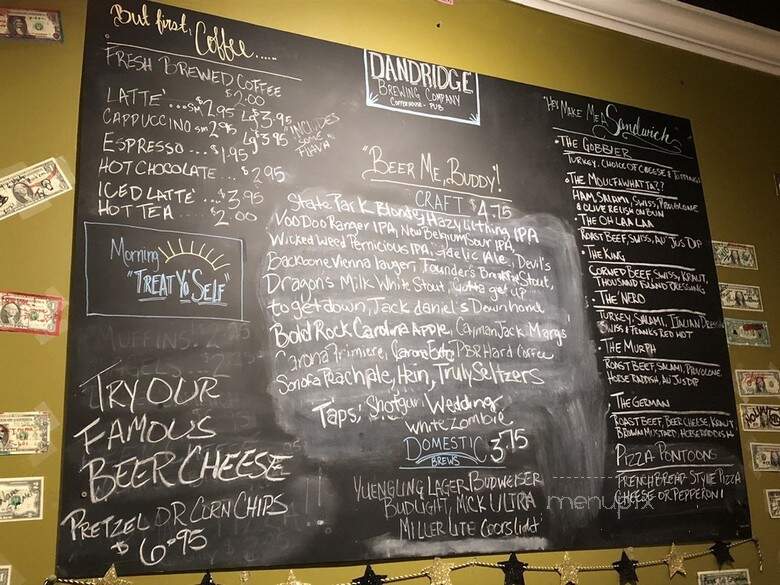 But first, Coffee.....
FRESH BREWED COFFEE
$2.00
LATTE ... sm $2.95 Lg $3.95
CAPPUCCINO sm 2.95 Lg $3.95
"INCLUDES
SOME
FLAVA"
ESPRESSO ... $1.95
HOT CHOCOLATE ... $2.95
ICED LATTE ... $3.95
HOT TEA ... $2.00
Morning
"TREAT YO SELF"
MUFFINS
TRY OUR
FAMOUS
BEER CHEESE
PRETZEL OR CORN CHIPS
$6.95
DANDRIDGE
BREWING COMPANY
COFFEEHOUSE - PUB
"BEER ME, BUDDY!
CRAFT $4.75
State Park Blonde, Hazy Little Thing, IPA
VooDoo Ranger IPA, New Belgium Sour IPA,
Wicked Weed Pernicious IPA, Gaelic Ale, Devil's
Backbone Vienna lauger, Founder's Breakfast Stout,
Dragon's Milk White Stout, Gotta get up
to get down, Jack daniel's Downhome
Bold Rock Carolina Apple, Cayman Jack Margs
Carona Primiere, Carona Extra, PBR Hard Coffee
Peach ale, Truly Seltzers
Taps; Shotgun Wedding
White Zombie
DOMESTIC 3.75
BREWS
YUENGLING LAGER, BUDWEISER
BUDLIGHT, MICK ULTRA
MILLER LITE Coors light
"HEY MAKE ME A Sandwich"
• THE GOBBLER
TURKEY, CHOICE OF CHEESE & TOPPINGS
• THE MOUFFAWHATTA??
HAM, SALAMI, SWISS, PROVOLONE
& OLIVE RELISH ON BUN
• THE OH LAA LAA
ROAST BEEF, SWISS, AU JUS DIP
• THE KING
CORNED BEEF, SWISS, KRAUT,
THOUSAND ISLAND DRESSING
• THE NERO
TURKEY, SALAMI, ITALIAN DRESSING
SWISS & FRANKS RED HOT
• THE MURPH
ROAST BEEF, SALAMI, PROVOLONE
HORSERADISH, AU JUS DIP
THE GERMAN
ROAST BEEF, BEER CHEESE, KRAUT,
BROWN MUSTARD, HORSERADISH
PIZZA PONTOONS
FRENCH BREAD STYLE PIZZA
CHEESE OR PEPPERONI
menupix